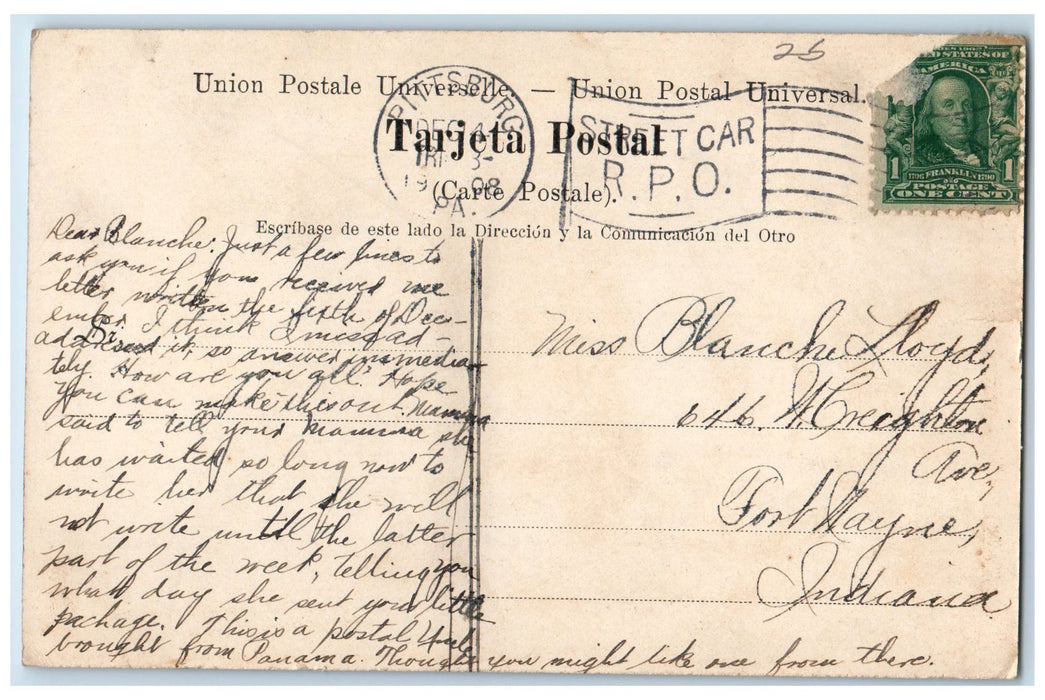 25
Union Postale Universelle. — Union Postal Universal.
PITTSBURG
DEC 4
3-
19 08
PA.
STREET CAR
R.P.O.
UNITED STATES OF
AMERICA
1 1706 FRANKLIN 1790 1
POSTAGE
ONE CENT
Tarjeta Postal
(Carte Postale).
Escríbase de este lado la Dirección y la Comunicación del Otro
Dear Blanche: Just a few lines to
ask you if you received me
letter written the fifth of Dec-
ember. I think I missad-
dressed it, so answer immedia-
tely. How are you all. Hope
you can make this out. Mamma
said to tell your mamma she
has waited so long now to
write her that she will
not write until the latter
part of the week, telling you
what day she sent your little
package. This is a postal Uncle
brought from Panama. Thought you might like one from there.
Miss Blanche Lloyd,
646. W. Creighton
Ave,
Fort Wayne,
Indiana